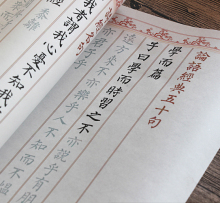 論語經典五十句
學而篇
子曰學而時習之不
亦說乎有朋
遠方來不亦樂乎人不知而不慍
亦君子乎
我者謂我心憂不知我